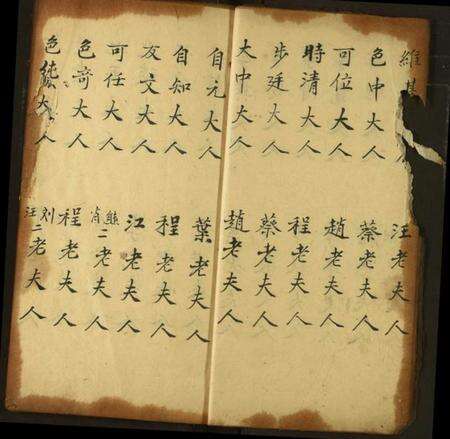 維 汪老夫人
色中大人 蔡老夫人
可位大人 趙老夫人
時清大人 程老夫人
步廷大人 蔡老夫人
大中大人 趙老夫人
自元大人 葉老夫人
自知大人 程老夫人
友文大人 江老夫人
可任大人 熊肖二老夫人
色奇大人 程老夫人
色純大人 刘汪二老夫人